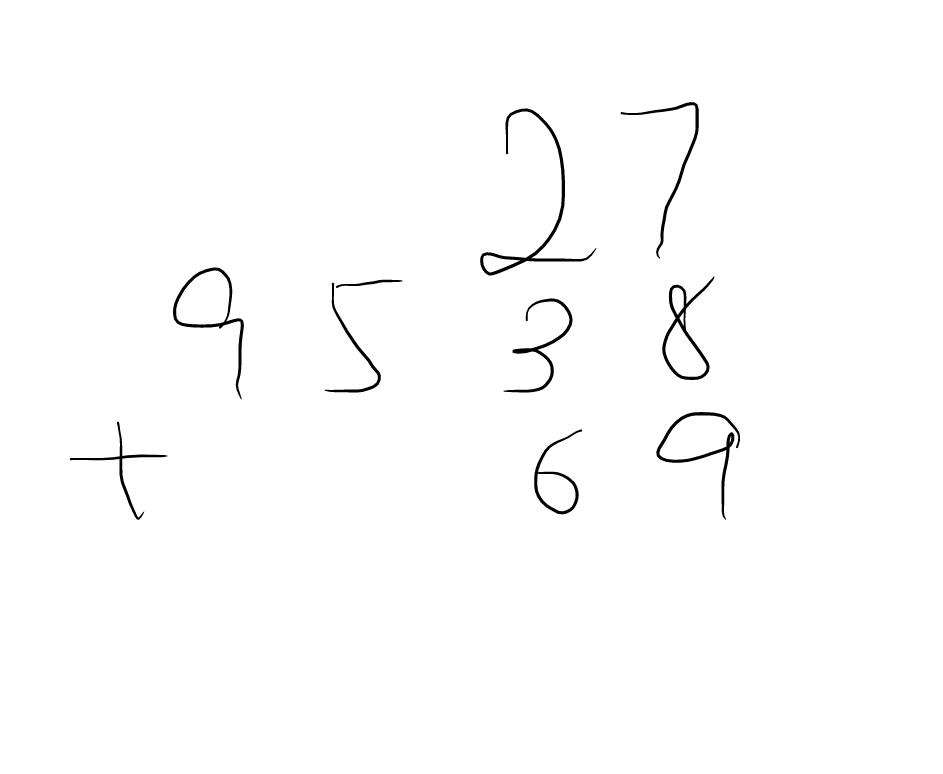 27
9538
+ 69